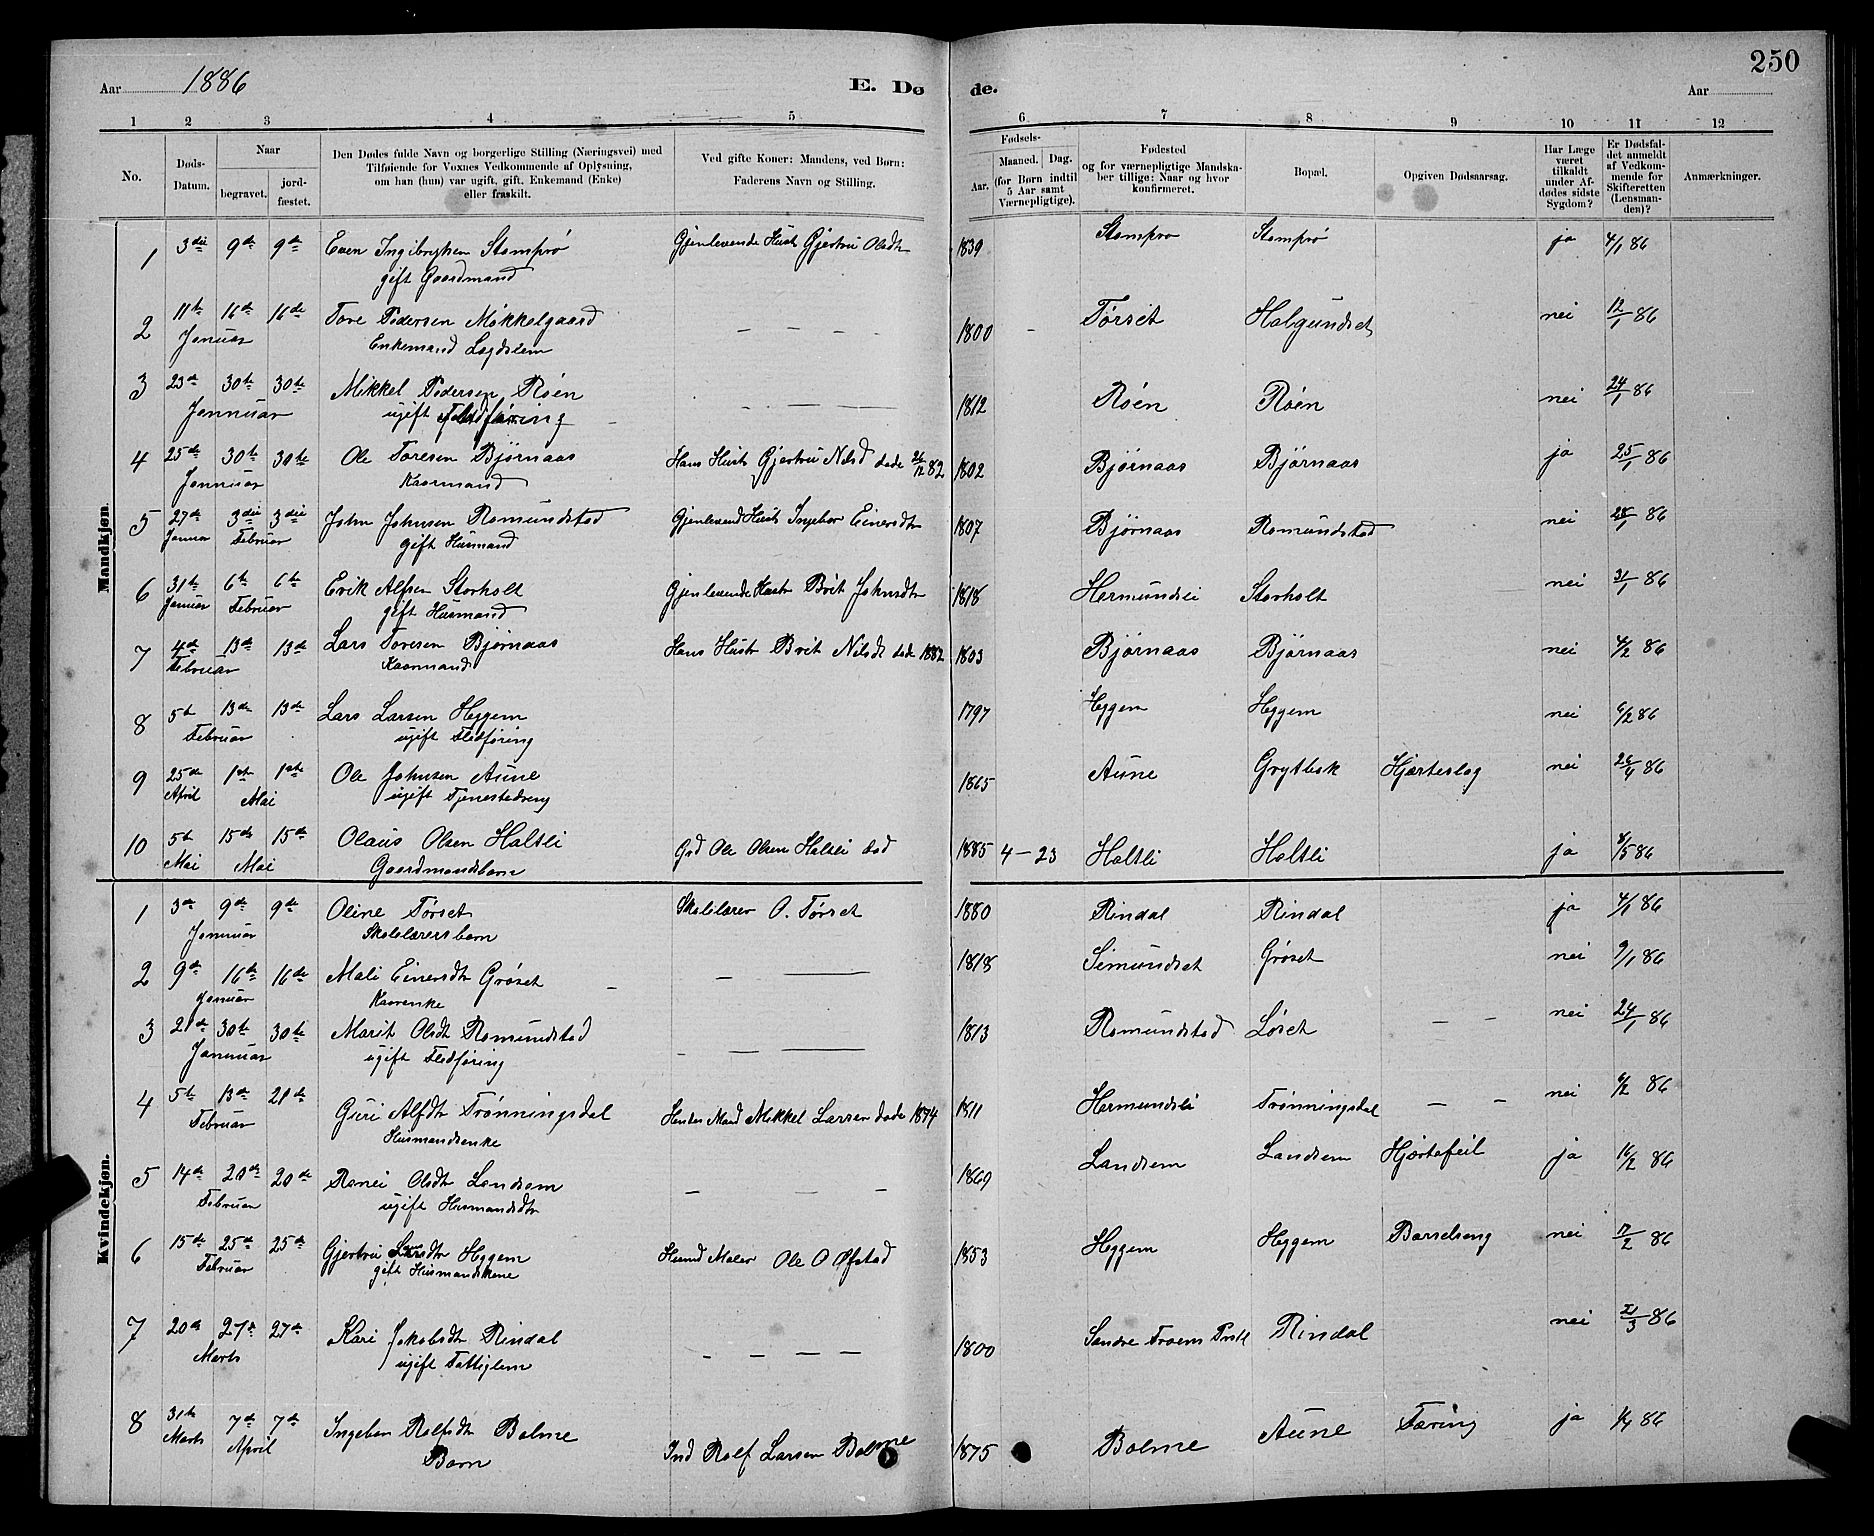 250
Aar 1886 E. Dø de. Aar
1 2 3 4 5 6 7 8 9 10 11 12
No. Døds-Datum. Naar begravet. jordfæstet. Den Dødes fulde Navn og borgerlige Stilling (Næringsvei) med Tilføiende for Voxnes Vedkommende af Oplysning, om han (hun) var ugift, gift, Enkemand (Enke) eller fraskilt. Ved gifte Koner: Mandens, ved Børn: Faderens Navn og Stilling. Fødsels- Aar. Maaned. Dag. (for Børn indtil 5 Aar samt Værnepligtige). Fødested og for værnepligtige Mandskaber tillige: Naar og hvor konfirmeret. Bopæl. Opgiven Dødsaarsag. Har Læge været tilkaldt under Afdødes sidste Sygdom? Er Dødsfaldet anmeldt af Vedkommende for Skifteretten (Lensmanden)? Anmærkninger.
Mandkjøn.
1 3die 9de 9de Even Ingibrigtsen Stomprø Gjenlevende Hustr Gjertru Olsdtr 1839 Stomprø Stomprø ja 4/1 86
gift Gaardmand
2 11te 16de 16de Tore Pedersen Mikkelgaard – – – – 1800 – Tørset Halgundset nei 12/1 86
Januar Enkemand Lægdslem
3 23de 30te 30te Mikkel Pedersen Røen – – – – 1812 Røen Røen nei 24/1 86
Januar ugift Fledføring
4 25de 30te 30te Ole Toresen Bjørnaas Hans Hustr Gjertru Nilsd døde 26/12 82 1802 Bjørnaas Bjørnaas ja 25/1 86
Januar Kaarmand
5 27de 3die 3die John Johnsen Romundstad Gjenlevend Hustr Ingebor Einersdtr 1807 Bjørnaas Romundstad nei 28/1 86
Januar Februar gift Husmand
6 31te 6te 6te Erik Alfsen Storholt Gjenlevende Hustr Brit Johnsdtr 1818 Hermundsli Storholt nei 31/1 86
Januar Februar gift Husmand
7 4de 13de 13de Lars Toresen Bjørnaas Hans Hustr Brit Nilsdt døde 1882 1803 Bjørnaas Bjørnaas nei 4/2 86
Februar Kaarmand
8 5te 13de 13de Lars Larsen Heggem 1797 Heggem Heggem nei 6/2 86
Februar ugift Fledføring
9 25de 1ste 1ste Ole Johnsen Aune 1865 Aune Grytbak Hjærteslag nei 26/4 86
April Mai ugift Tjenestedreng
10 5te 15de 15de Olaus Olsen Haltli Grd Ole Olsen Haltli 1885 4 – 23 Haltli Haltli ja 8/5 86
Mai Mai Gaardmandsbarn
Kvindekjøn.
1 3de 9de 9de Oline Tørset Skolelærer O. Tørset 1880 Rindal Rindal ja 4/1 86
Januar Skolelærersbarn
2 9de 16de 16de Mali Einersdtr Grøset – – 1818 Simundset Grøset nei 9/1 86
Januar Kaarenke
3 21de 30te 30te Marit Olsdt Romundstad – – – 1813 Romundstad Løset – – nei 24/1 86
Januar ugift Fledføring
4 5te 13de 21de Guri Alfdtr Trønningsdal Hendes Mand Mikkel Larsen døde 1874 1811 Hermundsli Trønningsdal – – nei 6/2 86
Februar Husmandsenke
5 14de 20de 20de Ranei Olsdt Landsem – – – 1869 Landsem Landsem Hjærtefeil ja 16/2 86
Februar ugift Husmandsdtr
6 15de 25de 25de Gjertru Larsdtr Heggem Husmd Maler Ole O Øfstad 1853 Heggem Heggem Barselseng nei 17/2 86
Februar gift Husmandskone
7 20de 27de 27de Kari Jakobsdt Rindal – – – – 1800 Søndre Froens Prstl Rindal nei 21/3 86
Marts ugift Fattiglem
8 31te 7de 7de Ingebor Rolfsdt Bolme Ind Rolf Larsen Bolme 1875 Bolme Aune Tæring ja 1/4 86
Marts April Barn